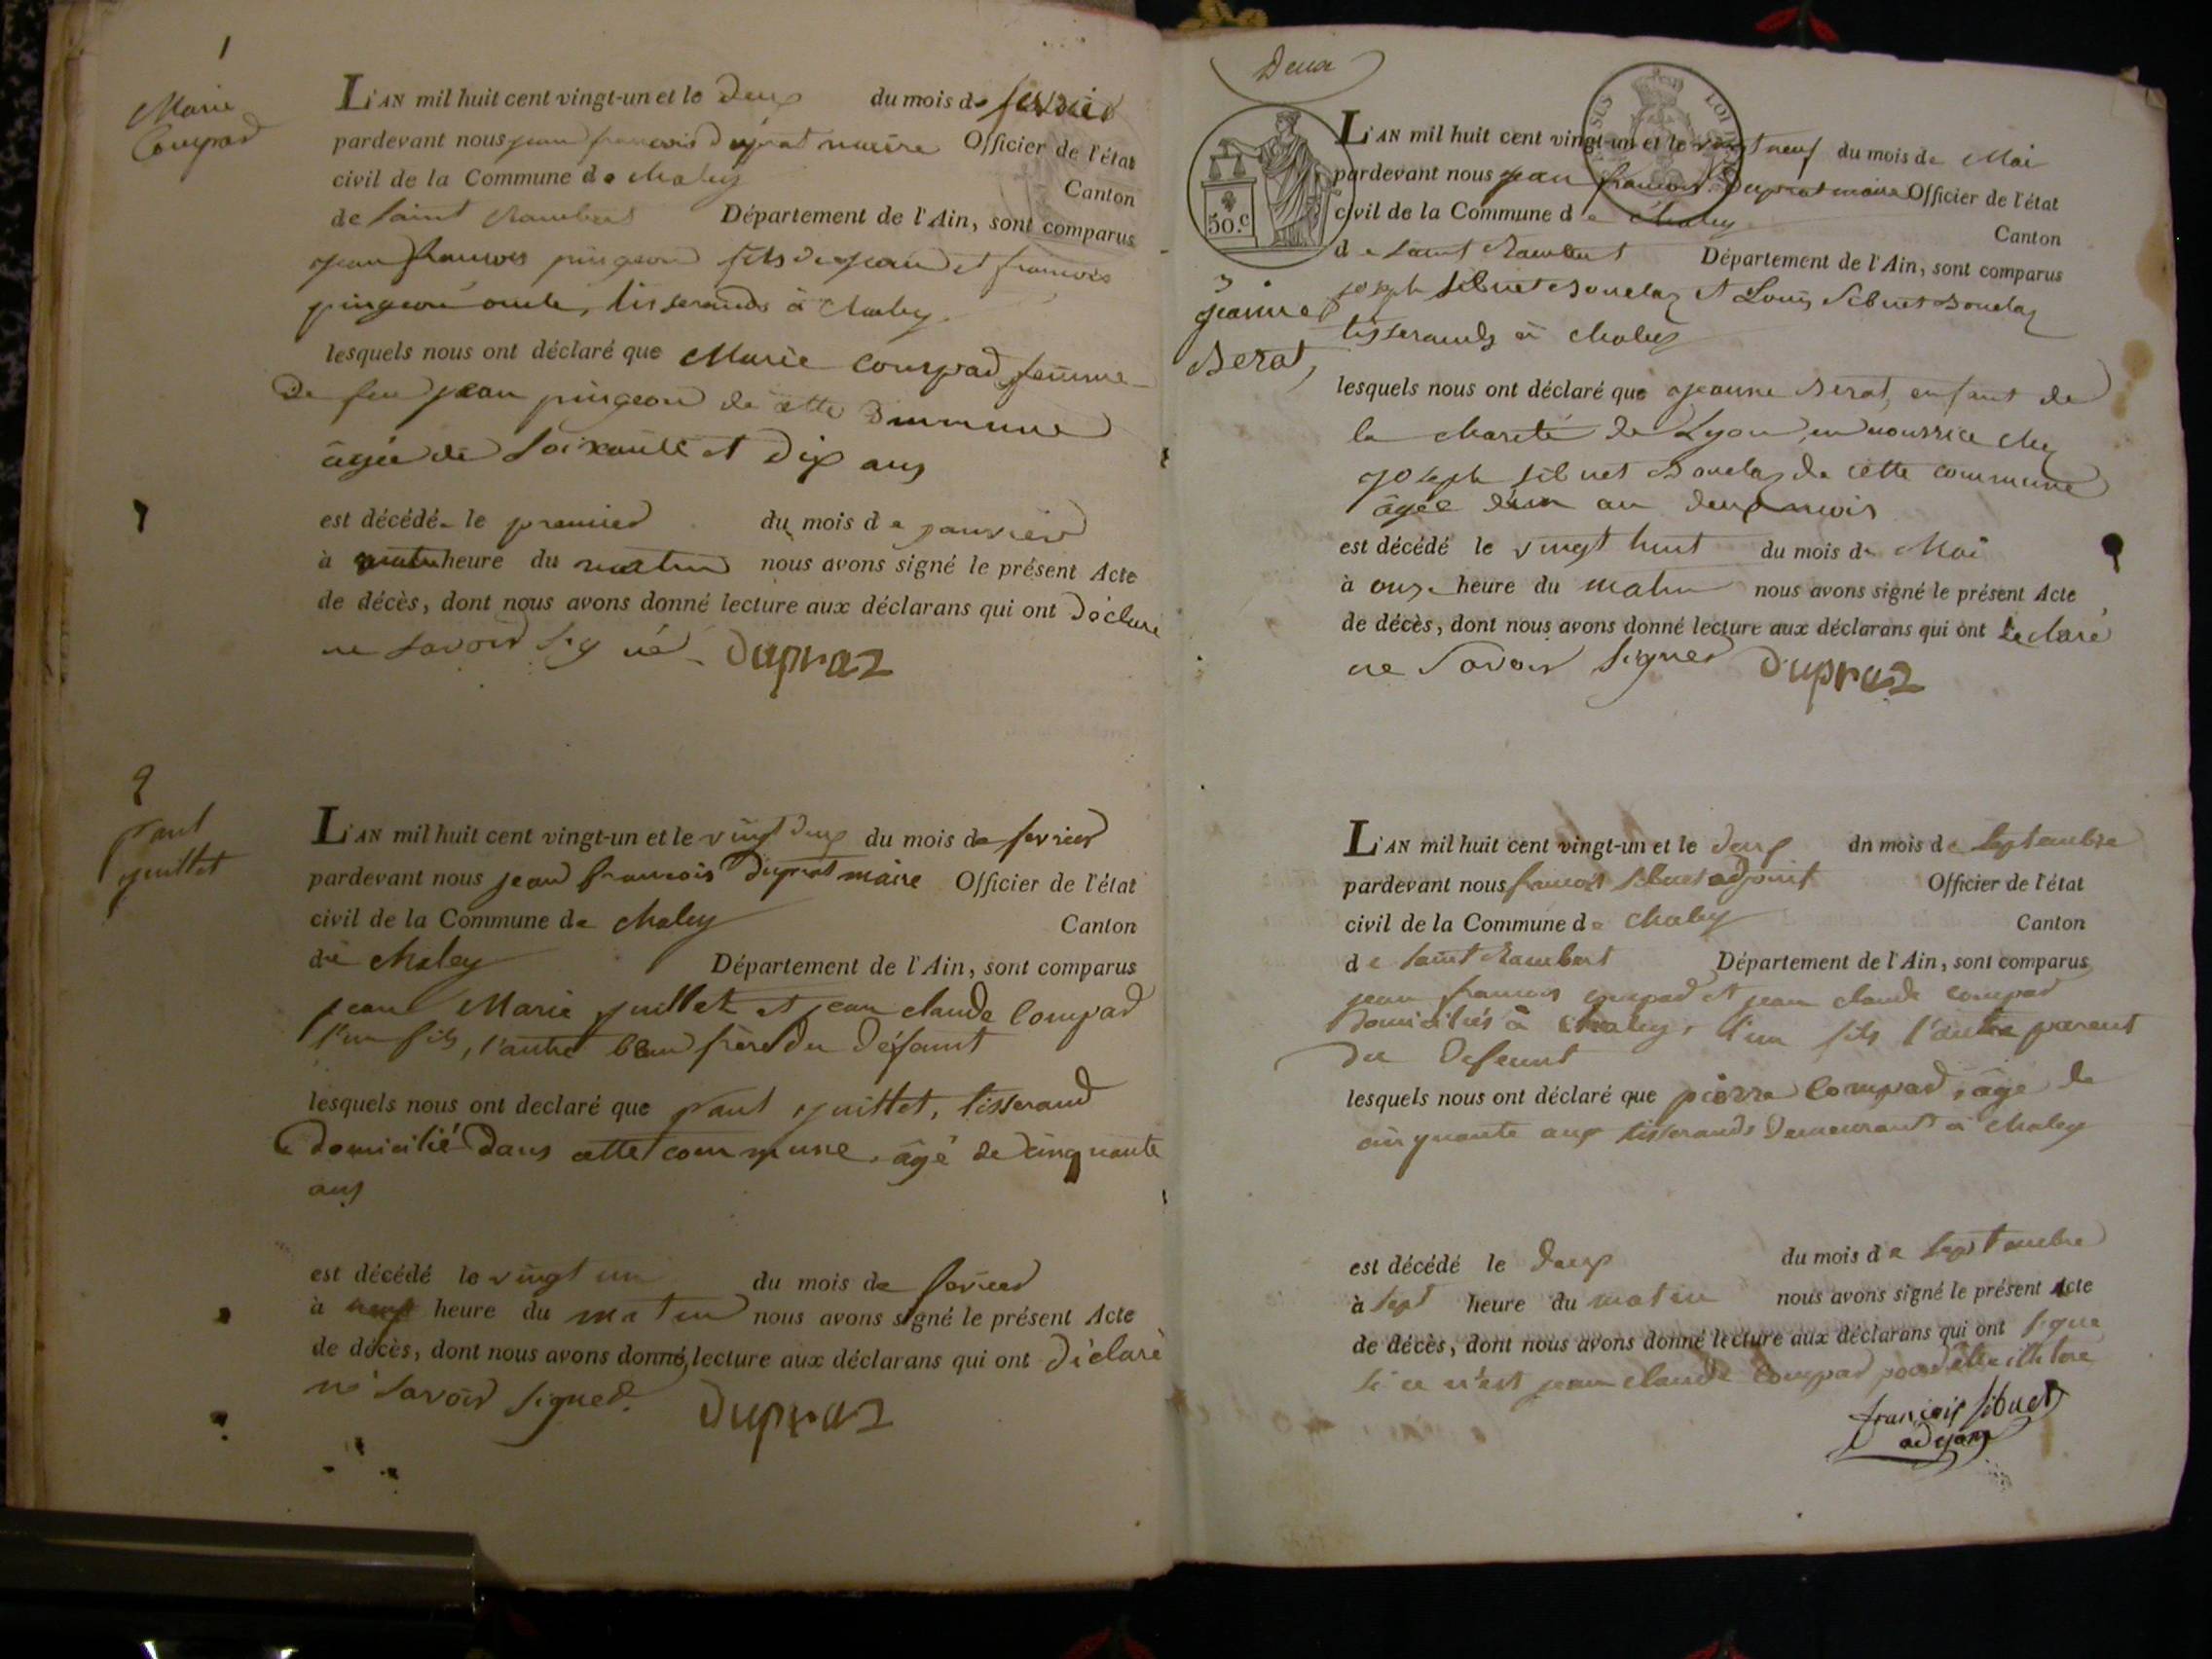 1
Marie
Compad
L'AN mil huit cent vingt-un et le deux du mois de
pardevant nous jean francois duprat maire Officier de l'état
civil de la Commune de chaley Canton
de saint Rambert Département de l'Ain, sont comparus
jean francois pingeon fils de jean et francois
pingeon oncle, tisserands à chaley.
lesquels nous ont déclaré que Marie compad femme
de feu jean pingeon de cette commune
âgée de soixante et dix ans
est décédée le premier du mois de janvier
à heure du matin nous avons signé le présent Acte
de décès, dont nous avons donné lecture aux déclarans qui ont déclaré
ne savoir signé dupraz
2
paul
juillet
L'AN mil huit cent vingt-un et le vingt deux du mois de fevrier
pardevant nous jean francois duprat maire Officier de l'état
civil de la Commune de chaley Canton
de chaley Département de l'Ain, sont comparus
jean Marie juillet et jean claude compad
l'un fils, l'autre beau frere du défaunt
lesquels nous ont declaré que paul juillet, tisserand
domicilié dans cette commune, âgé de cinquante
ans
est décédé le vingt un du mois de fevrier
à heure du matin nous avons signé le présent Acte
de décès, dont nous avons donné lecture aux déclarans qui ont déclaré
ne savoir signer. dupraz
Deux
50.c
3
jeanne
Berat
L'AN mil huit cent vingt-un et le vingt neuf du mois de Mai
pardevant nous jean francois duprat maire Officier de l'état
civil de la Commune de chaley Canton
de saint Rambert Département de l'Ain, sont comparus
joseph sibuet Bouclaz et Louis sibuet Bouclaz
tisserands à chaley
lesquels nous ont déclaré que jeanne Berat, enfant de
la charité de Lyon en nourrice chez
joseph sibuet Bouclaz de cette commune
âgée d'un an deux mois
est décédé le vingt huit du mois de Mai
à onze heure du matin nous avons signé le présent Acte
de décès, dont nous avons donné lecture aux déclarans qui ont declaré
ne savoir signer dupraz
L'AN mil huit cent vingt-un et le deux dn mois de septembre
pardevant nous francois sibuet adjoint Officier de l'état
civil de la Commune de chaley Canton
de saint Rambert Département de l'Ain, sont comparus
jean francois compad et jean claude compad
domiciliés à chaley, l'un fils l'autre parent
du defeunt
lesquels nous ont déclaré que pierre compad, âgé de
cinquante ans tisserands demeurant à chaley
est décédé le deux du mois de septembre
à sept heure du matin nous avons signé le présent Acte
de décès, dont nous avons donné lecture aux déclarans qui ont signé
si ce n'est jean claude compad pour être illitere
francois sibuet
adjoint